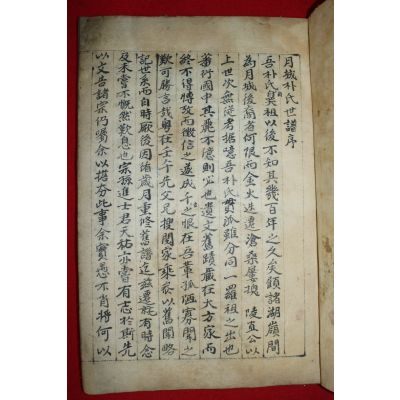 月城朴氏世譜序
吾朴氏鼻祖以後不知其幾百年之久矣顧諸湖嶺間
為月城後裔者何限而金火迭遷滄桑屢換 陵直公以
上世次無從考據噫吾朴氏貫派雖分同一羅祖之出也
蕃衍國中其麗不億則宜也遺文舊蹟藏在大方家而
終不得博攷而徵信之遂成千古恨在吾輩孤陋寡聞之
歎可勝言哉粤在壬午先父兄搜閱家乘參以舊聞略
記世系而自時厥後因循歲月重修舊譜迄玆遷就有時念
及未嘗不慨然歎息也宗孫進士君天祐亦嘗有志於斯先
以文告諸宗仍囑余以攟夯此事余實愚不肖將何以